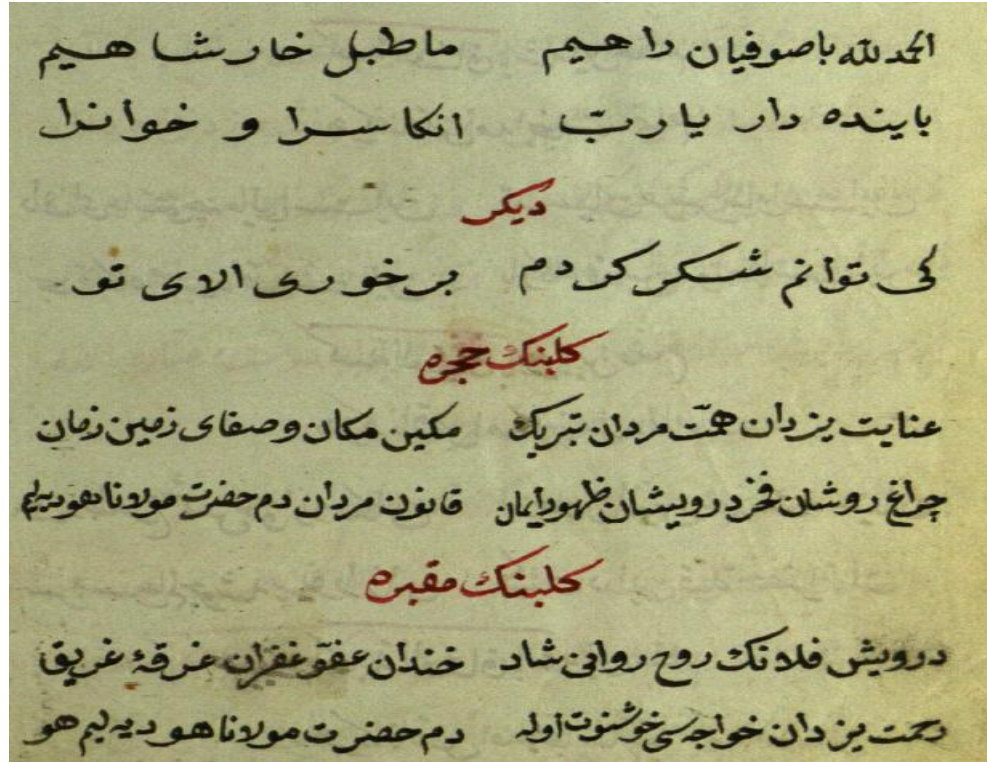 الحمد لله باصوفیان راهیم ماطبل خارشاهیم
باینده دار یا ربّ انکاسرا و خوانرا
دیکر
کی توانم شکر کردم بر خوری الای تو
کلبنك حجره
عنایت یزدان همّت مردان تبریك مکین مکان و صفای زمین زمان
چراغ روشان فخر درویشان ظهور ایمان قانون مردان دم حضرت مولانا هو دیه لیم
کلبنك مقبره
درویش فلانك روح روانی شاد خندان عفو غفران غرقهٔ غریق
رحمت یزدان خواجه سی خوشنوت اوله دم حضرت مولانا هو دیه لیم هو